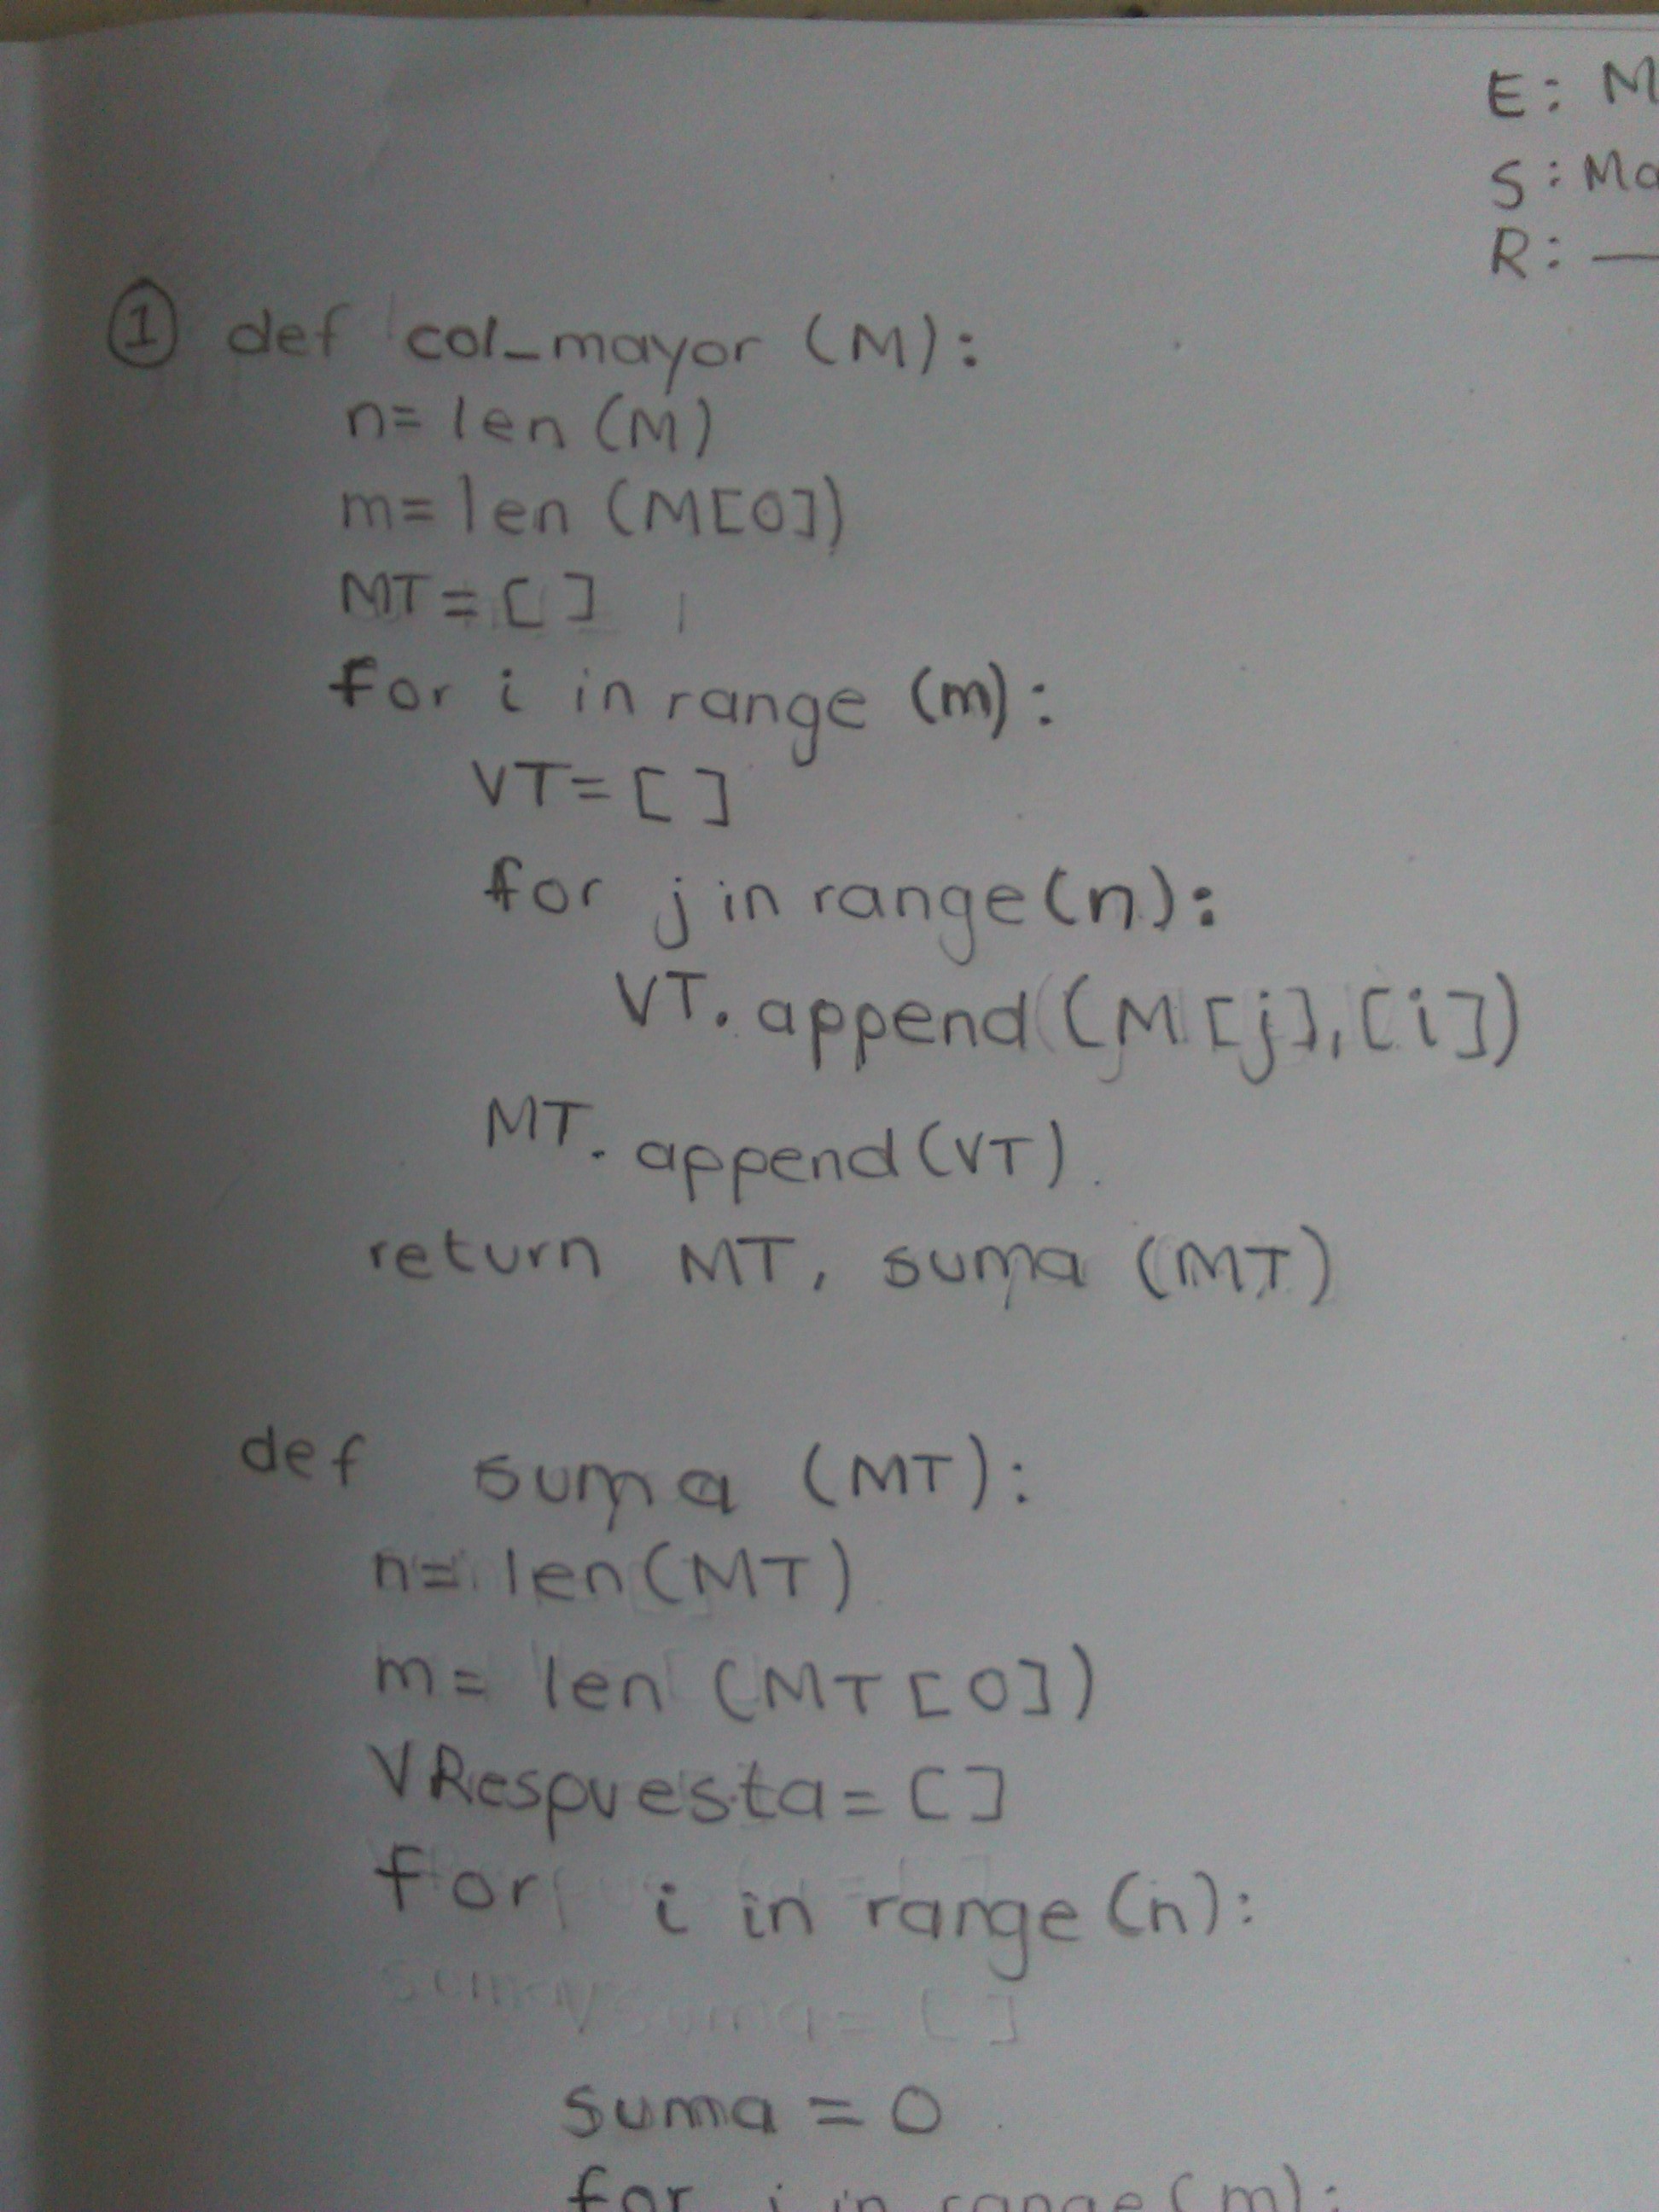 E: M
S: Ma
R: —
① def col_mayor (M):
n= len (M)
m= len (M[0])
MT = [ ]
for i in range (m):
VT= [ ]
for j in range(n):
VT. append (M[j],[i])
MT. append(VT)
return MT, suma (MT)
def suma (MT):
n= len(MT)
m= len (MT[0])
VRespuesta= [ ]
for i in range(n):
suma = 0
for j in range(m):